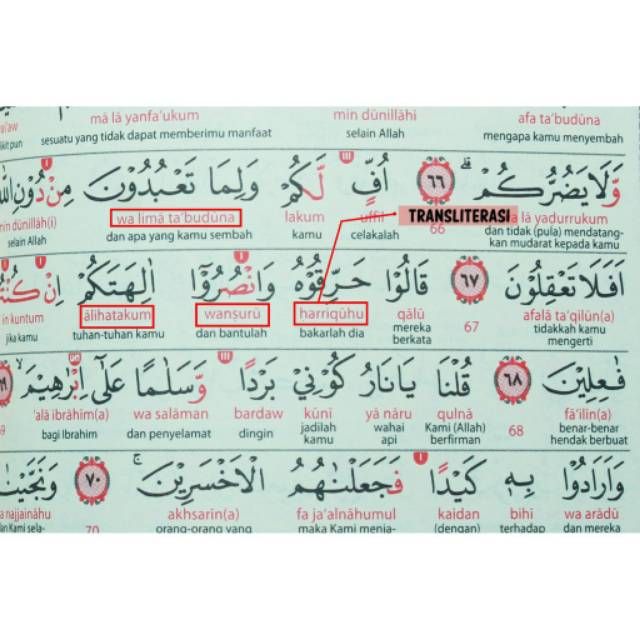 afa ta'budūna min dūnillāhi mā lā yanfa'ukum
mengapa kamu menyembah selain Allah sesuatu yang tidak dapat memberimu manfaat
وَّلَا يَضُرُّكُمْ ۗ ٦٦ اُفٍّ لَّكُمْ وَلِمَا تَعْبُدُوْنَ مِنْ دُوْنِ اللّٰهِ
TRANSLITERASI
lā yadurrukum 66 uffil lakum wa limā ta'budūna min dūnillāh(i)
dan tidak (pula) mendatang- celakalah kamu dan apa yang kamu sembah selain Allah
kan mudarat kepada kamu
اَفَلَا تَعْقِلُوْنَ ٦٧ قَالُوْا حَرِّقُوْهُ وَانْصُرُوْٓا اٰلِهَتَكُمْ اِنْ
afalā ta'qilūn(a) 67 qālū harriqūhu wansurū ālihatakum in kuntum
tidakkah kamu mereka bakarlah dia dan bantulah tuhan-tuhan kamu jika kamu
mengerti berkata
فٰعِلِيْنَ ٦٨ قُلْنَا يَا نَارُ كُوْنِيْ بَرْدًا وَّسَلٰمًا عَلٰٓى اِبْرٰهِيْمَ
fā'ilīn(a) 68 qulnā yā nāru kūnī bardaw wa salāman 'alā ibrāhīm(a)
benar-benar Kami (Allah) wahai jadilah dingin dan penyelamat bagi Ibrahim
hendak berbuat berfirman api kamu
وَاَرَادُوْا بِهٖ كَيْدًا فَجَعَلْنٰهُمُ الْاَخْسَرِيْنَ ٧٠
wa arādū bihī kaidan fa ja'alnāhumul akhsarīn(a) 70 najjaināhu
dan mereka terhadap (dengan) maka Kami menja- orang-orang yang